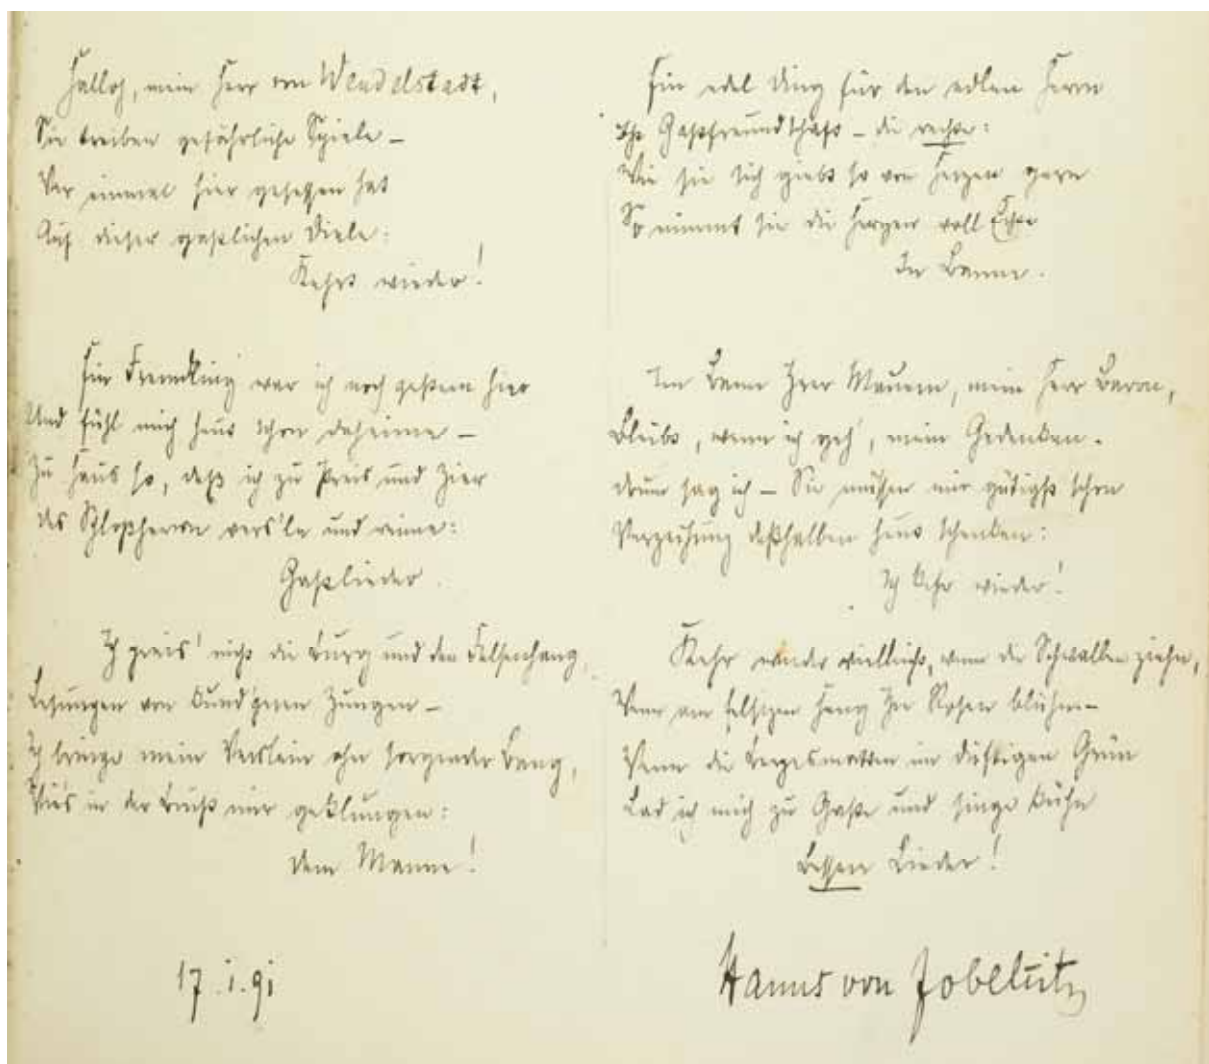 Halloh, mein Herr von Wendelstadt,
Sie treiben gefährliche Spiele –
Wer einmal hier gesessen hat
Auf dieser gastlichen Diele:
Kehrt wieder!
Ein Fremdling war ich noch gestern hier
Und fühl mich heut schon daheime –
Zu Haus so, daß ich zu Preis und Zier
des Schloßherrn vers'le und reime:
Gastlieder.
Ich preis' nicht die Burg und den Felsenhang,
von kund'geren Zungen –
Ich bringe mein Verslein ohn sorgender Bang,
Wie's in der Brust mir geklungen:
dem Manne!
17.i.91
Ein edel Ding für den edlen Herrn
Ist Gastfreundschaft – die rechte:
Wie sie sich giebt so von Herzen gern
So nimmt sie die Herzen voll
In Banne.
Im Bann Ihrer Mauern, mein Herr Baron,
Bleibt, wenn ich geh', mein Gedenken.
drum sag ich – Sie müssen mir gütigst schon
Verzeihung deßhalben heut schenken:
Ich kehr wieder!
Kehr wieder vielleicht, wenn die Schwalben ziehn,
Wenn am felsigen Hang Ihre Rosen blühn –
Wenn die Bergesmatten im duftigen Grün
Lad ich mich zu Gaste und singe kühn
Bessere Lieder!
Hanns von Zobeltitz